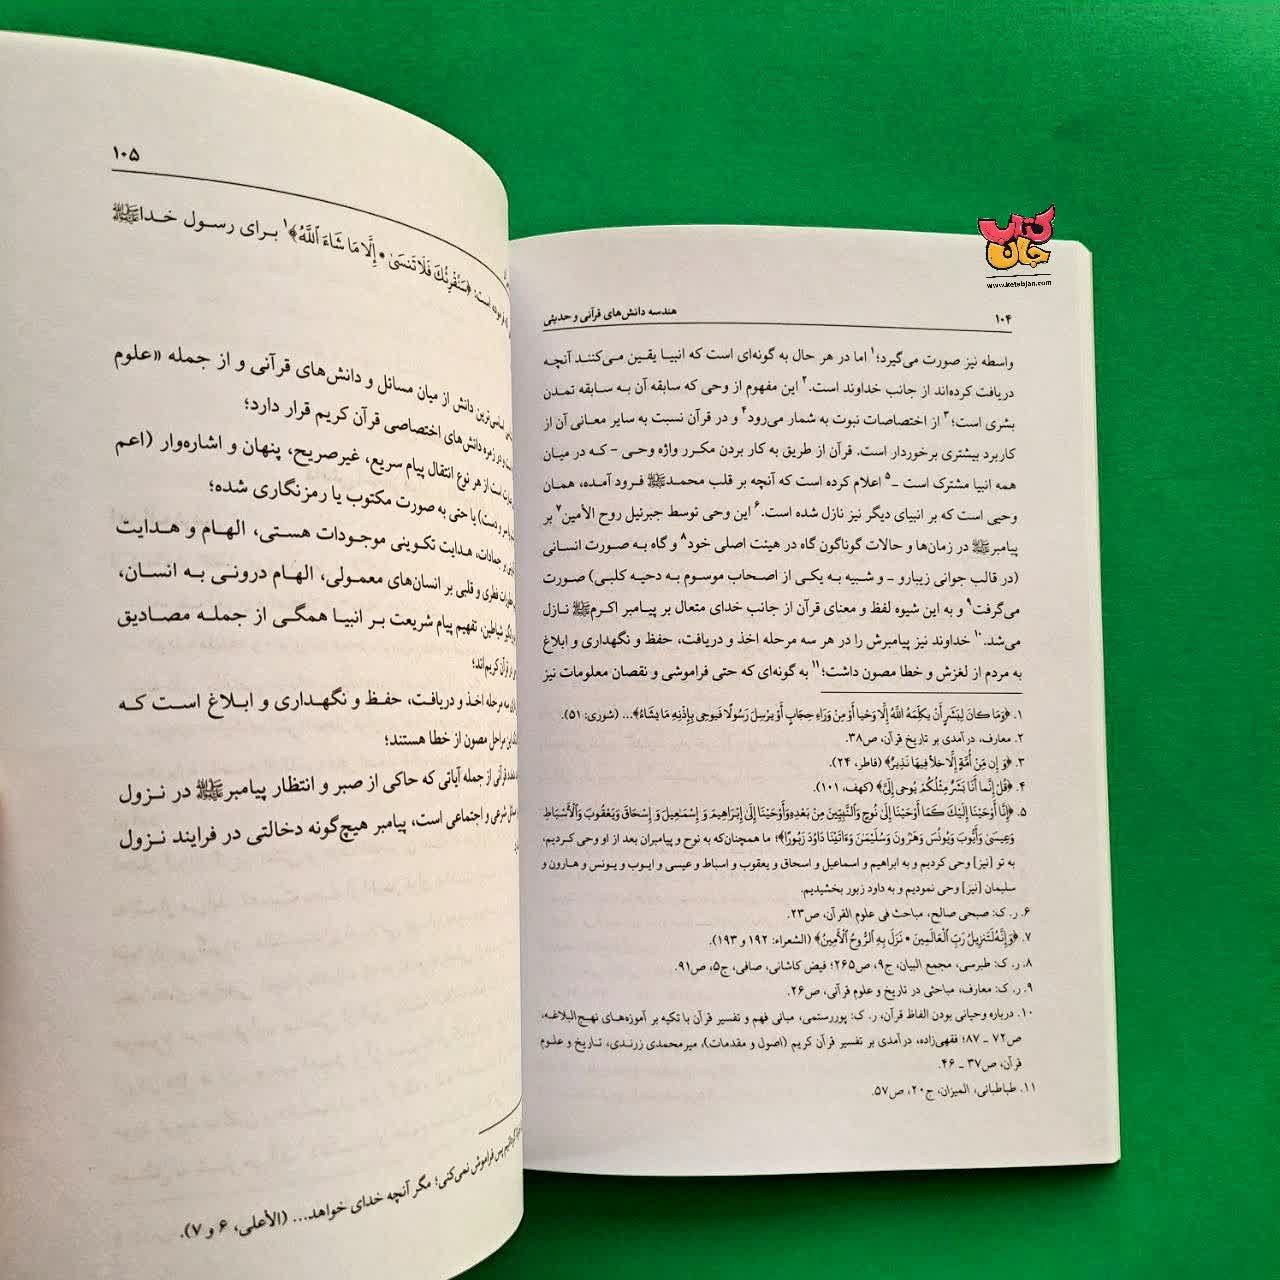 کتاب جان
www.ketabjan.com
۱۰۴
هندسه دانش‌های قرآنی و حدیثی
واسطه نیز صورت می‌گیرد؛۱ اما در هر حال به گونه‌ای است که انبیا یقین می‌کنند آنچه
دریافت کرده‌اند از جانب خداوند است.۲ این مفهوم از وحی که سابقه آن به سابقه تمدن
بشری است؛۳ از اختصاصات نبوت به شمار می‌رود۴ و در قرآن نسبت به سایر معانی آن از
کاربرد بیشتری برخوردار است. قرآن از طریق به کار بردن مکرر واژه وحی - که در میان
همه انبیا مشترک است -۵ اعلام کرده است که آنچه بر قلب محمدﷺ فرود آمده، همان
وحیی است که بر انبیای دیگر نیز نازل شده است.۶ این وحی توسط جبرئیل روح الأمین۷ بر
پیامبرﷺ در زمان‌ها و حالات گوناگون گاه در هیئت اصلی خود۸ و گاه به صورت انسانی
(در قالب جوانی زیبارو - و شبیه به یکی از اصحاب موسوم به دحیه کلبی) صورت
می‌گرفت۹ و به این شیوه لفظ و معنای قرآن از جانب خدای متعال بر پیامبر اکرمﷺ نازل
می‌شد.۱۰ خداوند نیز پیامبرش را در هر سه مرحله اخذ و دریافت، حفظ و نگهداری و ابلاغ
به مردم از لغزش و خطا مصون داشت؛۱۱ به گونه‌ای که حتی فراموشی و نقصان معلومات نیز
۱. ﴿وَمَا كَانَ لِبَشَرٍ أَنْ يُكَلِّمَهُ اللَّهُ إِلَّا وَحْيًا أَوْ مِنْ وَرَاءِ حِجَابٍ أَوْ يُرْسِلَ رَسُولًا فَيُوحِيَ بِإِذْنِهِ مَا يَشَاءُ﴾... (شوری: ۵۱).
۲. معارف، درآمدی بر تاریخ قرآن، ص۳۸.
۳. ﴿وَ إِن مِّنْ أُمَّةٍ إِلَّا خَلاَ فِيهَا نَذِيرٌ﴾ (فاطر، ۲۴).
۴. ﴿قُلْ إِنَّمَا أَنَا بَشَرٌ مِثْلُكُمْ يُوحَى إِلَيَّ﴾ (کهف، ۱۰۱).
۵. ﴿إِنَّا أَوْحَيْنَا إِلَيْكَ كَمَا أَوْحَيْنَا إِلَى نُوحٍ وَالنَّبِيِّينَ مِنْ بَعْدِهِ وَأَوْحَيْنَا إِلَى إِبْرَاهِيمَ وَ إِسْمَاعِيلَ وَ إِسْحَاقَ وَيَعْقُوبَ وَالْأَسْبَاطِ
وَعِيسَى وَأَيُّوبَ وَيُونُسَ وَهَرُونَ وَسُلَيْمَنَ وَءَاتَيْنَا دَاوُدَ زَبُورًا﴾؛ ما همچنان‌که به نوح و پیامبران بعد از او وحی کردیم،
به تو [نیز] وحی کردیم و به ابراهیم و اسماعیل و اسحاق و یعقوب و اسباط و عیسی و ایوب و یونس و هارون و
سلیمان [نیز] وحی نمودیم و به داود زبور بخشیدیم.
۶. ر. ک: صبحی صالح، مباحث فی علوم القرآن، ص۲۳.
۷. ﴿وَإِنَّهُ لَتَنزِيلُ رَبِّ الْعَالَمِينَ • نَزَلَ بِهِ الرُّوحُ الْأَمِينُ﴾ (الشعراء: ۱۹۲ و ۱۹۳).
۸. ر. ک: طبرسی، مجمع البیان، ج۹، ص۲۶۵؛ فیض کاشانی، صافی، ج۵، ص۹۱.
۹. ر. ک: معارف، مباحثی در تاریخ و علوم قرآنی، ص۲۶.
۱۰. درباره وحیانی بودن الفاظ قرآن، ر. ک: پوررستمی، مبانی فهم و تفسیر قرآن با تکیه بر آموزه‌های نهج‌البلاغه،
ص۷۲ - ۸۷؛ فقهی‌زاده، درآمدی بر تفسیر قرآن کریم (اصول و مقدمات)، میرمحمدی زرندی، تاریخ و علوم
قرآن، ص۳۷ - ۴۶.
۱۱. طباطبائی، المیزان، ج۲۰، ص۵۷.
۱۰۵
فرموده است: ﴿سَنُقْرِئُكَ فَلَا تَنسَىٰ • إِلَّا مَا شَاءَ ٱللَّهُ﴾۱ برای رسول خداﷺ
اساسی‌ترین دانش از میان مسائل و دانش‌های قرآنی و از جمله «علوم
و در زمره دانش‌های اختصاصی قرآن کریم قرار دارد؛
است از هر نوع انتقال پیام سریع، غیرصریح، پنهان و اشاره‌وار (اعم
سر و دست) یا حتی به صورت مکتوب یا رمزنگاری شده؛
و جمادات، هدایت تکوینی موجودات هستی، الهام و هدایت
فطری و قلبی بر انسان‌های معمولی، الهام درونی به انسان،
شیاطین، تفهیم پیام شریعت بر انبیا همگی از جمله مصادیق
در قرآن کریم‌اند؛
سه مرحله اخذ و دریافت، حفظ و نگهداری و ابلاغ است که
این مراحل مصون از خطا هستند؛
قرآنی از جمله آیاتی که حاکی از صبر و انتظار پیامبرﷺ در نزول
مسائل شرعی و اجتماعی است، پیامبر هیچ‌گونه دخالتی در فرایند نزول
پس فراموش نمی‌کنی؛ مگر آنچه خدای خواهد... (الأعلی، ۶ و ۷).